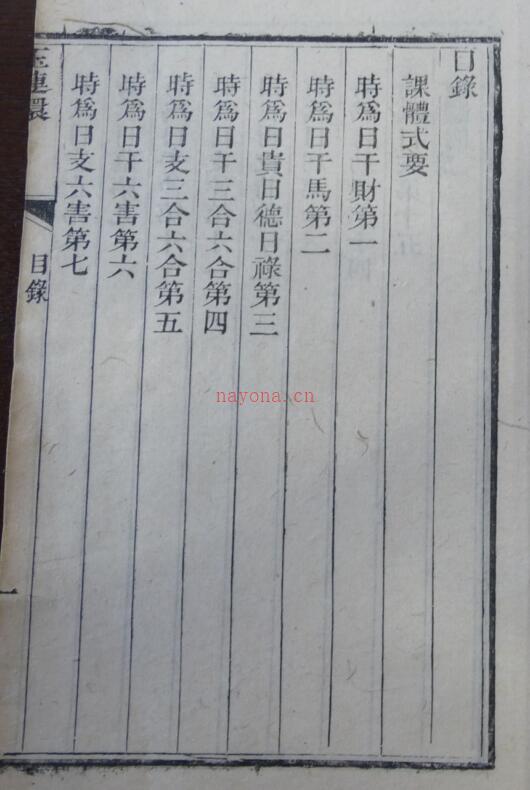 目錄
課體式要
時爲日干財第一
時爲日干馬第二
時爲日貴日德日祿第三
時爲日干三合六合第四
時爲日支三合六合第五
時爲日干六害第六
時爲日支六害第七
玉連環
目錄
nayona.cn